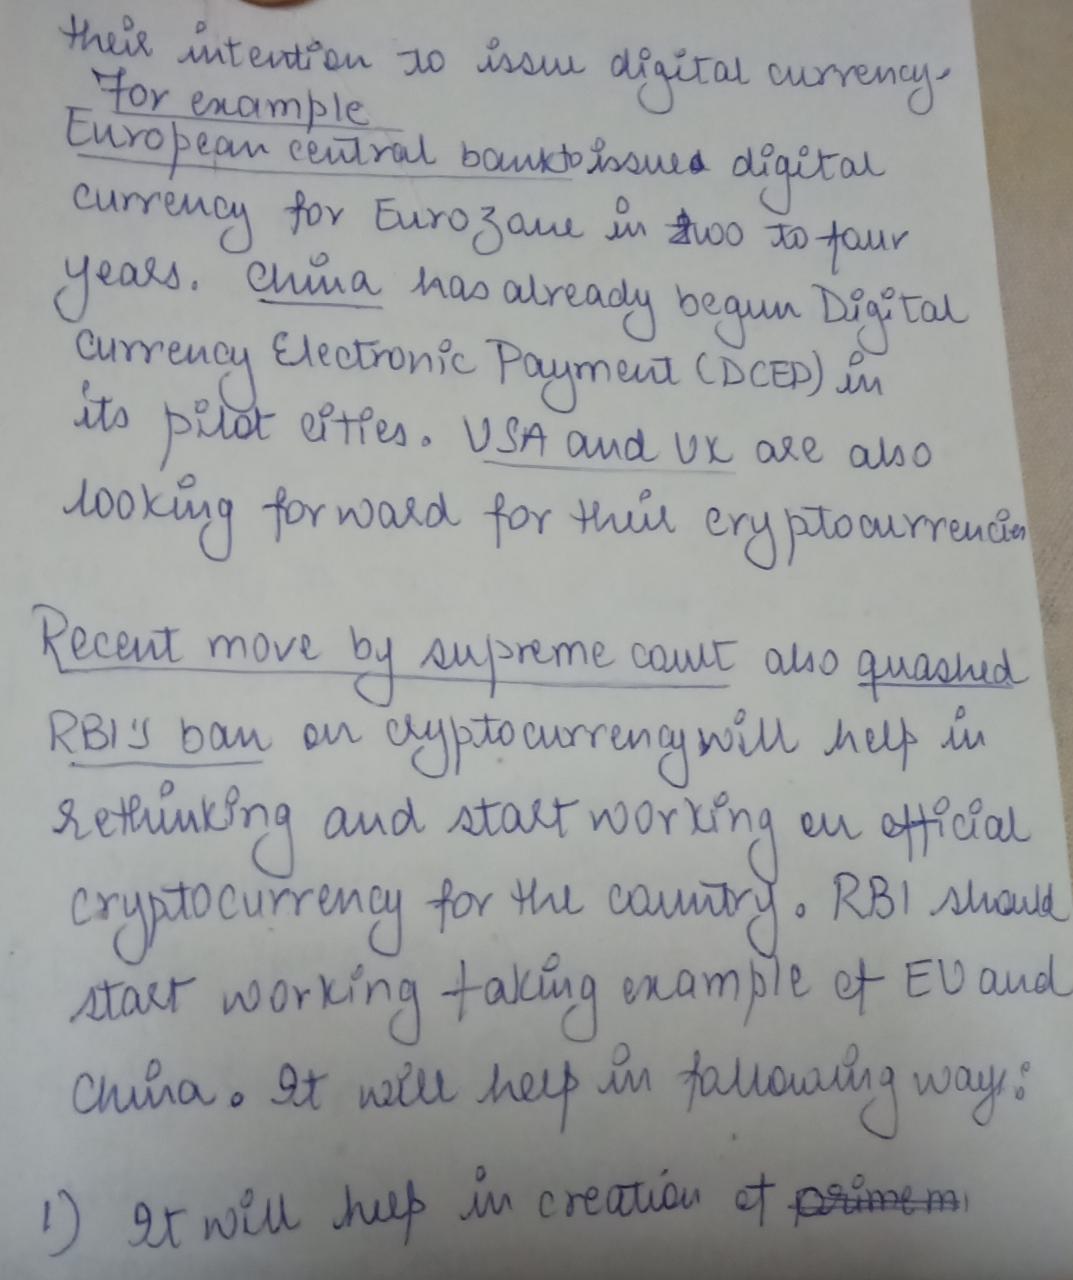 their intention to issue digital currency.
For example
European central bank to issue digital
currency for Eurozone in two to four
years. China has already begun Digital
currency Electronic Payment (DCEP) in
its pilot cities. USA and UK are also
looking forward for their cryptocurrencies
Recent move by supreme court also quashed
RBI's ban on cryptocurrency will help in
rethinking and start working on official
cryptocurrency for the country. RBI should
start working taking example of EU and
China. It will help in following ways:
1) It will help in creation of